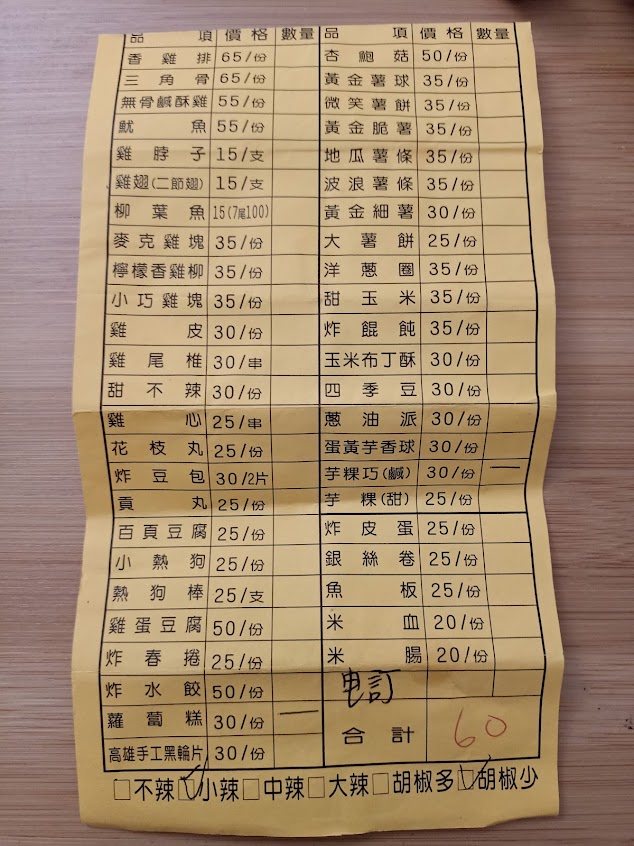 品項 價格 數量
香雞排 65/份
三角骨 65/份
無骨鹹酥雞 55/份
魷魚 55/份
雞脖子 15/支
雞翅(二節翅) 15/支
柳葉魚 15(7尾100)
麥克雞塊 35/份
檸檬香雞柳 35/份
小巧雞塊 35/份
雞皮 30/份
雞尾椎 30/串
甜不辣 30/份
雞心 25/串
花枝丸 25/份
炸豆包 30/2片
貢丸 25/份
百頁豆腐 25/份
小熱狗 25/份
熱狗棒 25/支
雞蛋豆腐 50/份
炸春捲 25/份
炸水餃 50/份
蘿蔔糕 30/份 一
高雄手工黑輪片 30/份
品項 價格 數量
杏鮑菇 50/份
黃金薯球 35/份
微笑薯餅 35/份
黃金脆薯 35/份
地瓜薯條 35/份
波浪薯條 35/份
黃金細薯 30/份
大薯餅 25/份
洋蔥圈 35/份
甜玉米 35/份
炸餛飩 35/份
玉米布丁酥 30/份
四季豆 30/份
蔥油派 30/份
蛋黃芋香球 30/份
芋粿巧(鹹) 30/份 一
芋粿(甜) 25/份
炸皮蛋 25/份
銀絲卷 25/份
魚板 25/份
米血 20/份
米腸 20/份
电訂
合計 60
□不辣☑小辣□中辣□大辣□胡椒多☑胡椒少